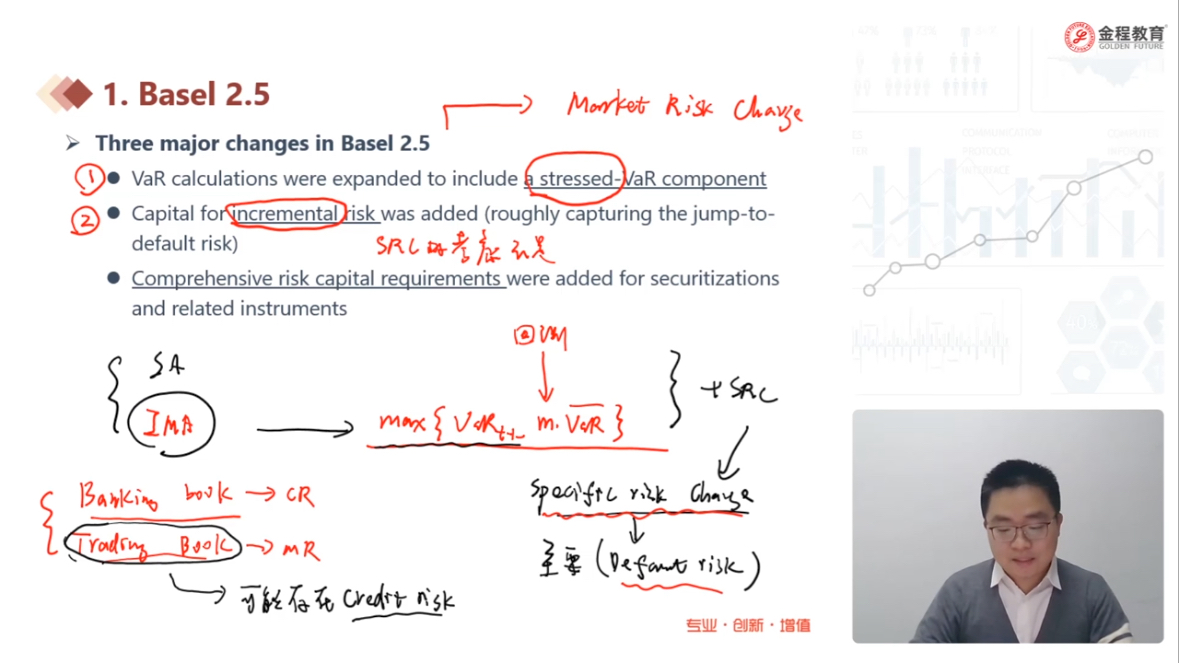 金程教育
GOLDEN FUTURE
1. Basel 2.5
Market Risk Charge
Three major changes in Basel 2.5
① VaR calculations were expanded to include a stressed-VaR component
② Capital for incremental risk was added (roughly capturing the jump-to-
default risk)
SRC的考虑不足
Comprehensive risk capital requirements were added for securitizations
and related instruments
SA
IMA
max{VaRt-1 m.VaR} + SRC
Specific risk charge
主要 (Default risk)
Banking book → CR
Trading Book → MR
可能存在 Credit risk
专业·创新·增值